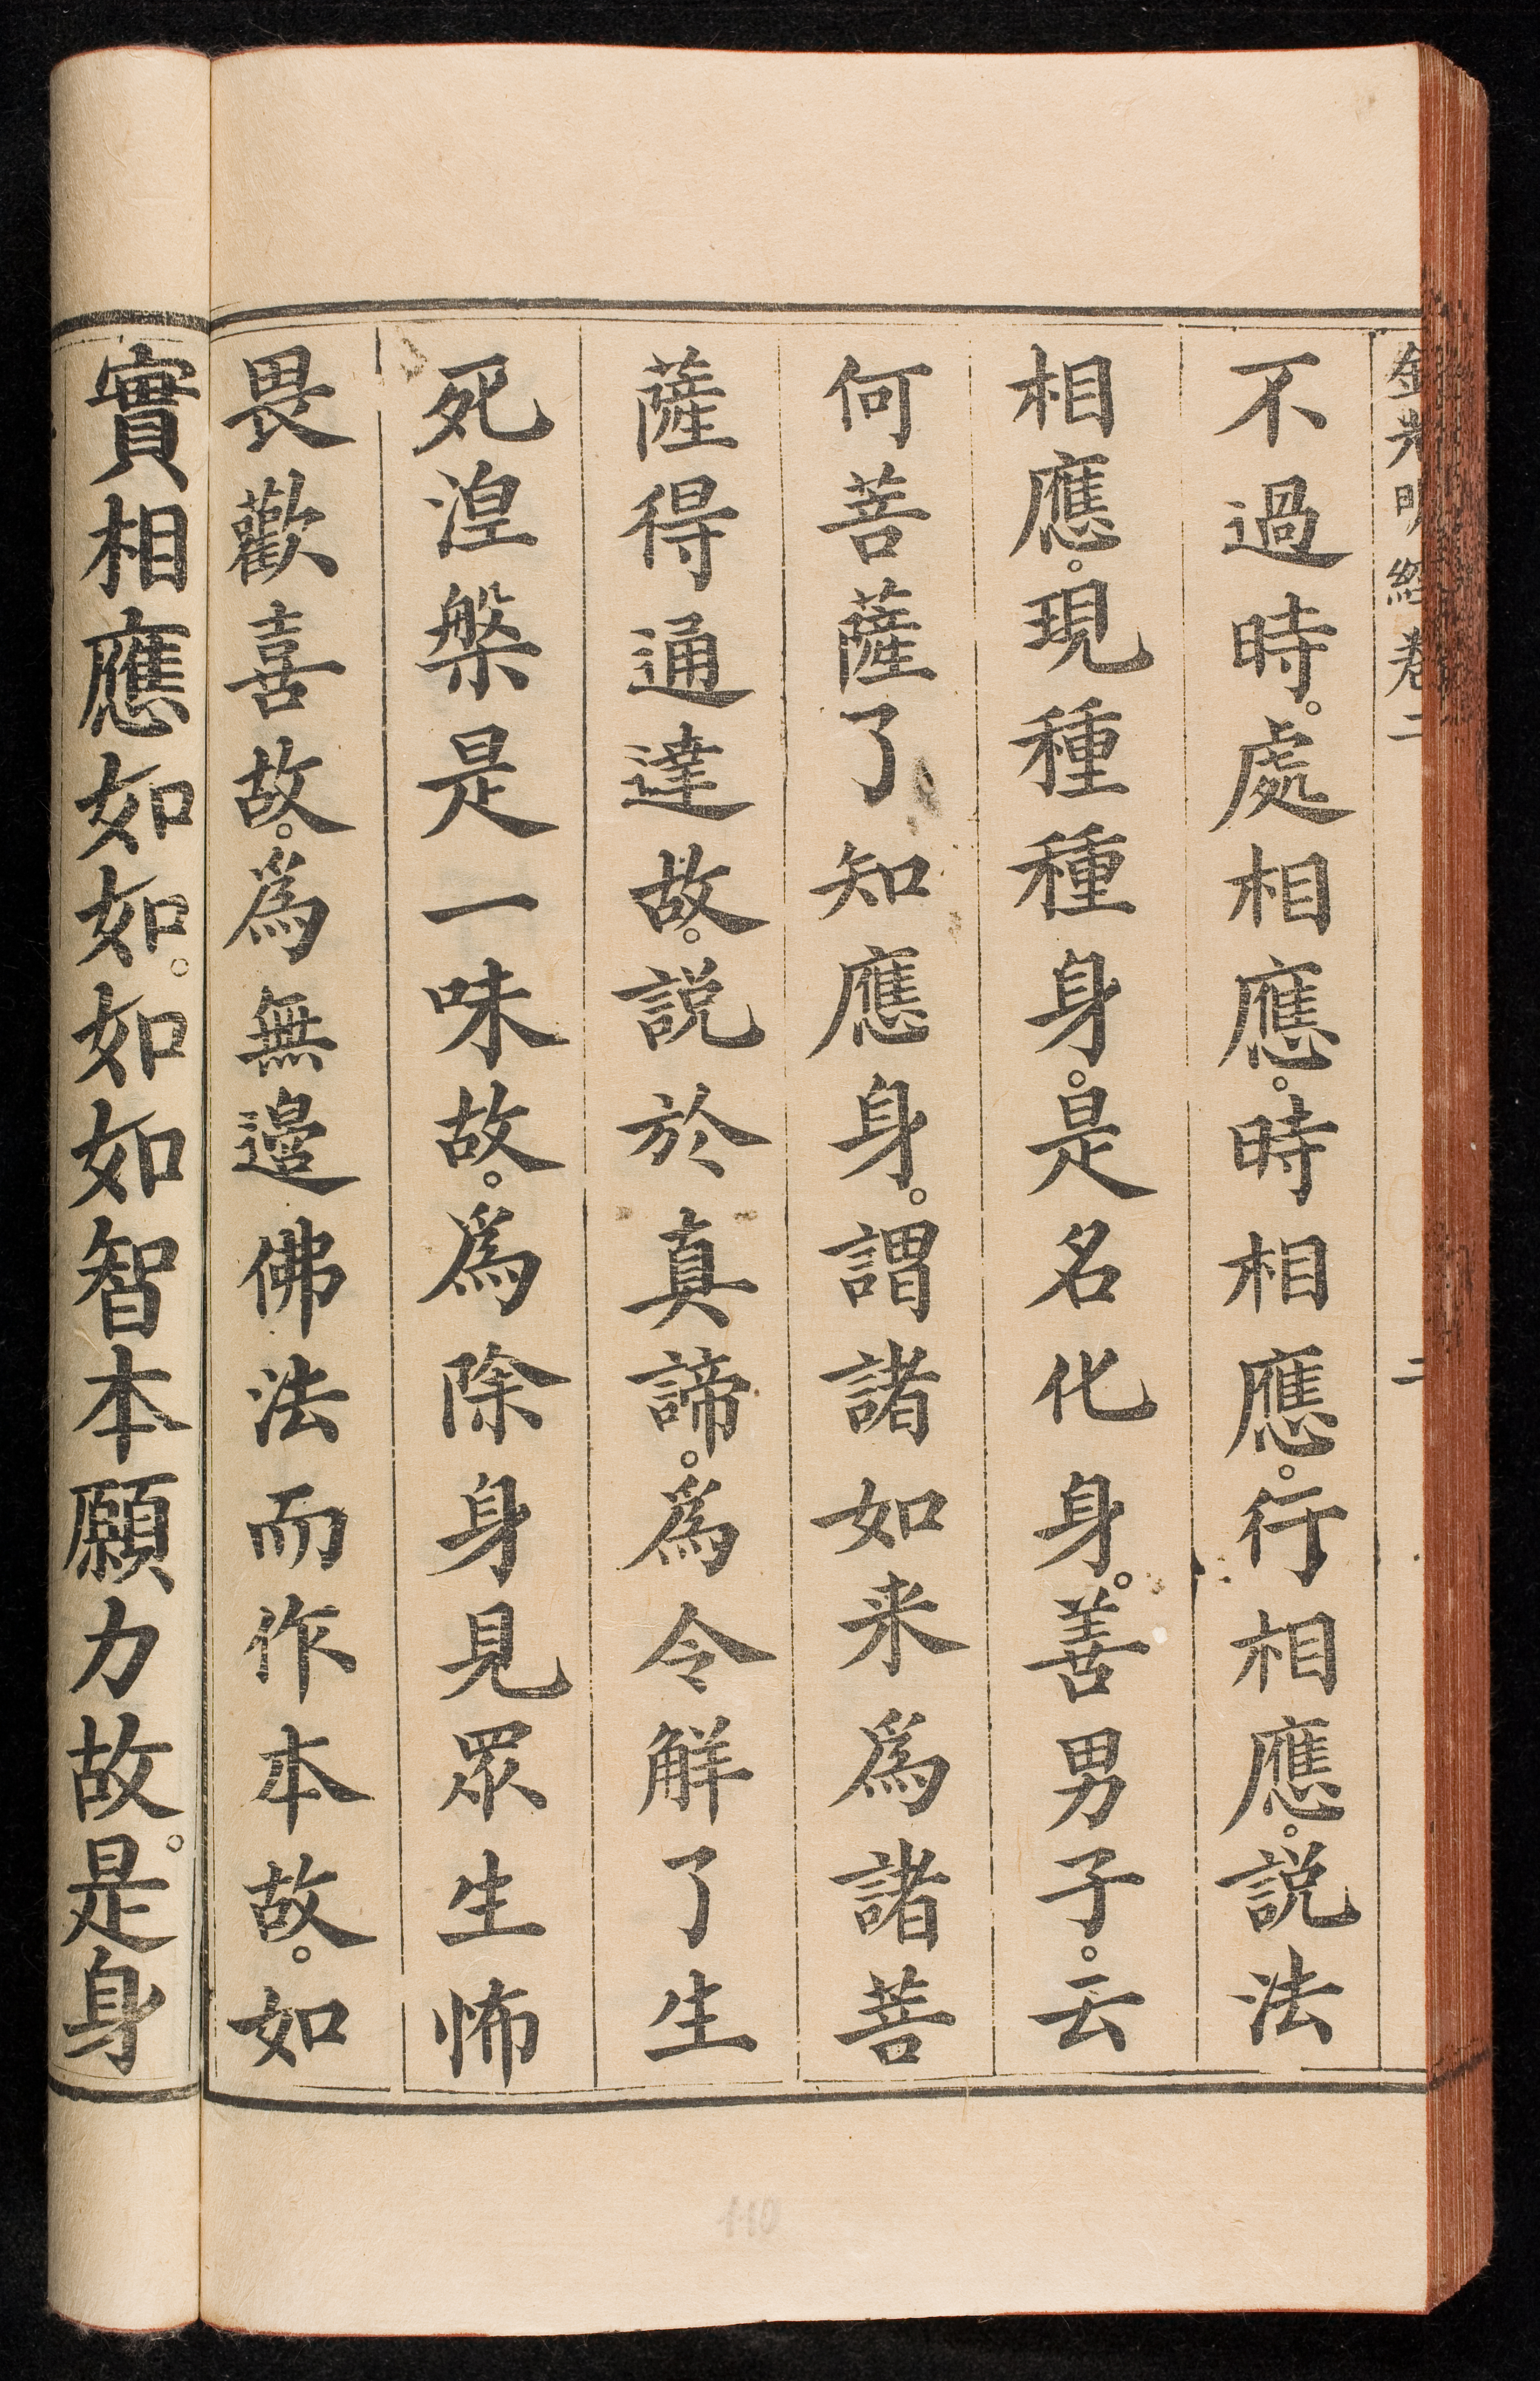 金光明經卷二 二
不過時。處相應。時相應。行相應。説法
相應。現種種身。是名化身。善男子。云
何菩薩了知應身。謂諸如来爲諸菩
薩得通達故。説於真諦。爲令解了生
死湼槃是一味故。爲除身見眾生怖
畏歡喜故。爲無邊佛法而作本故。如
實相應如如。如如智本願力故。是身
110